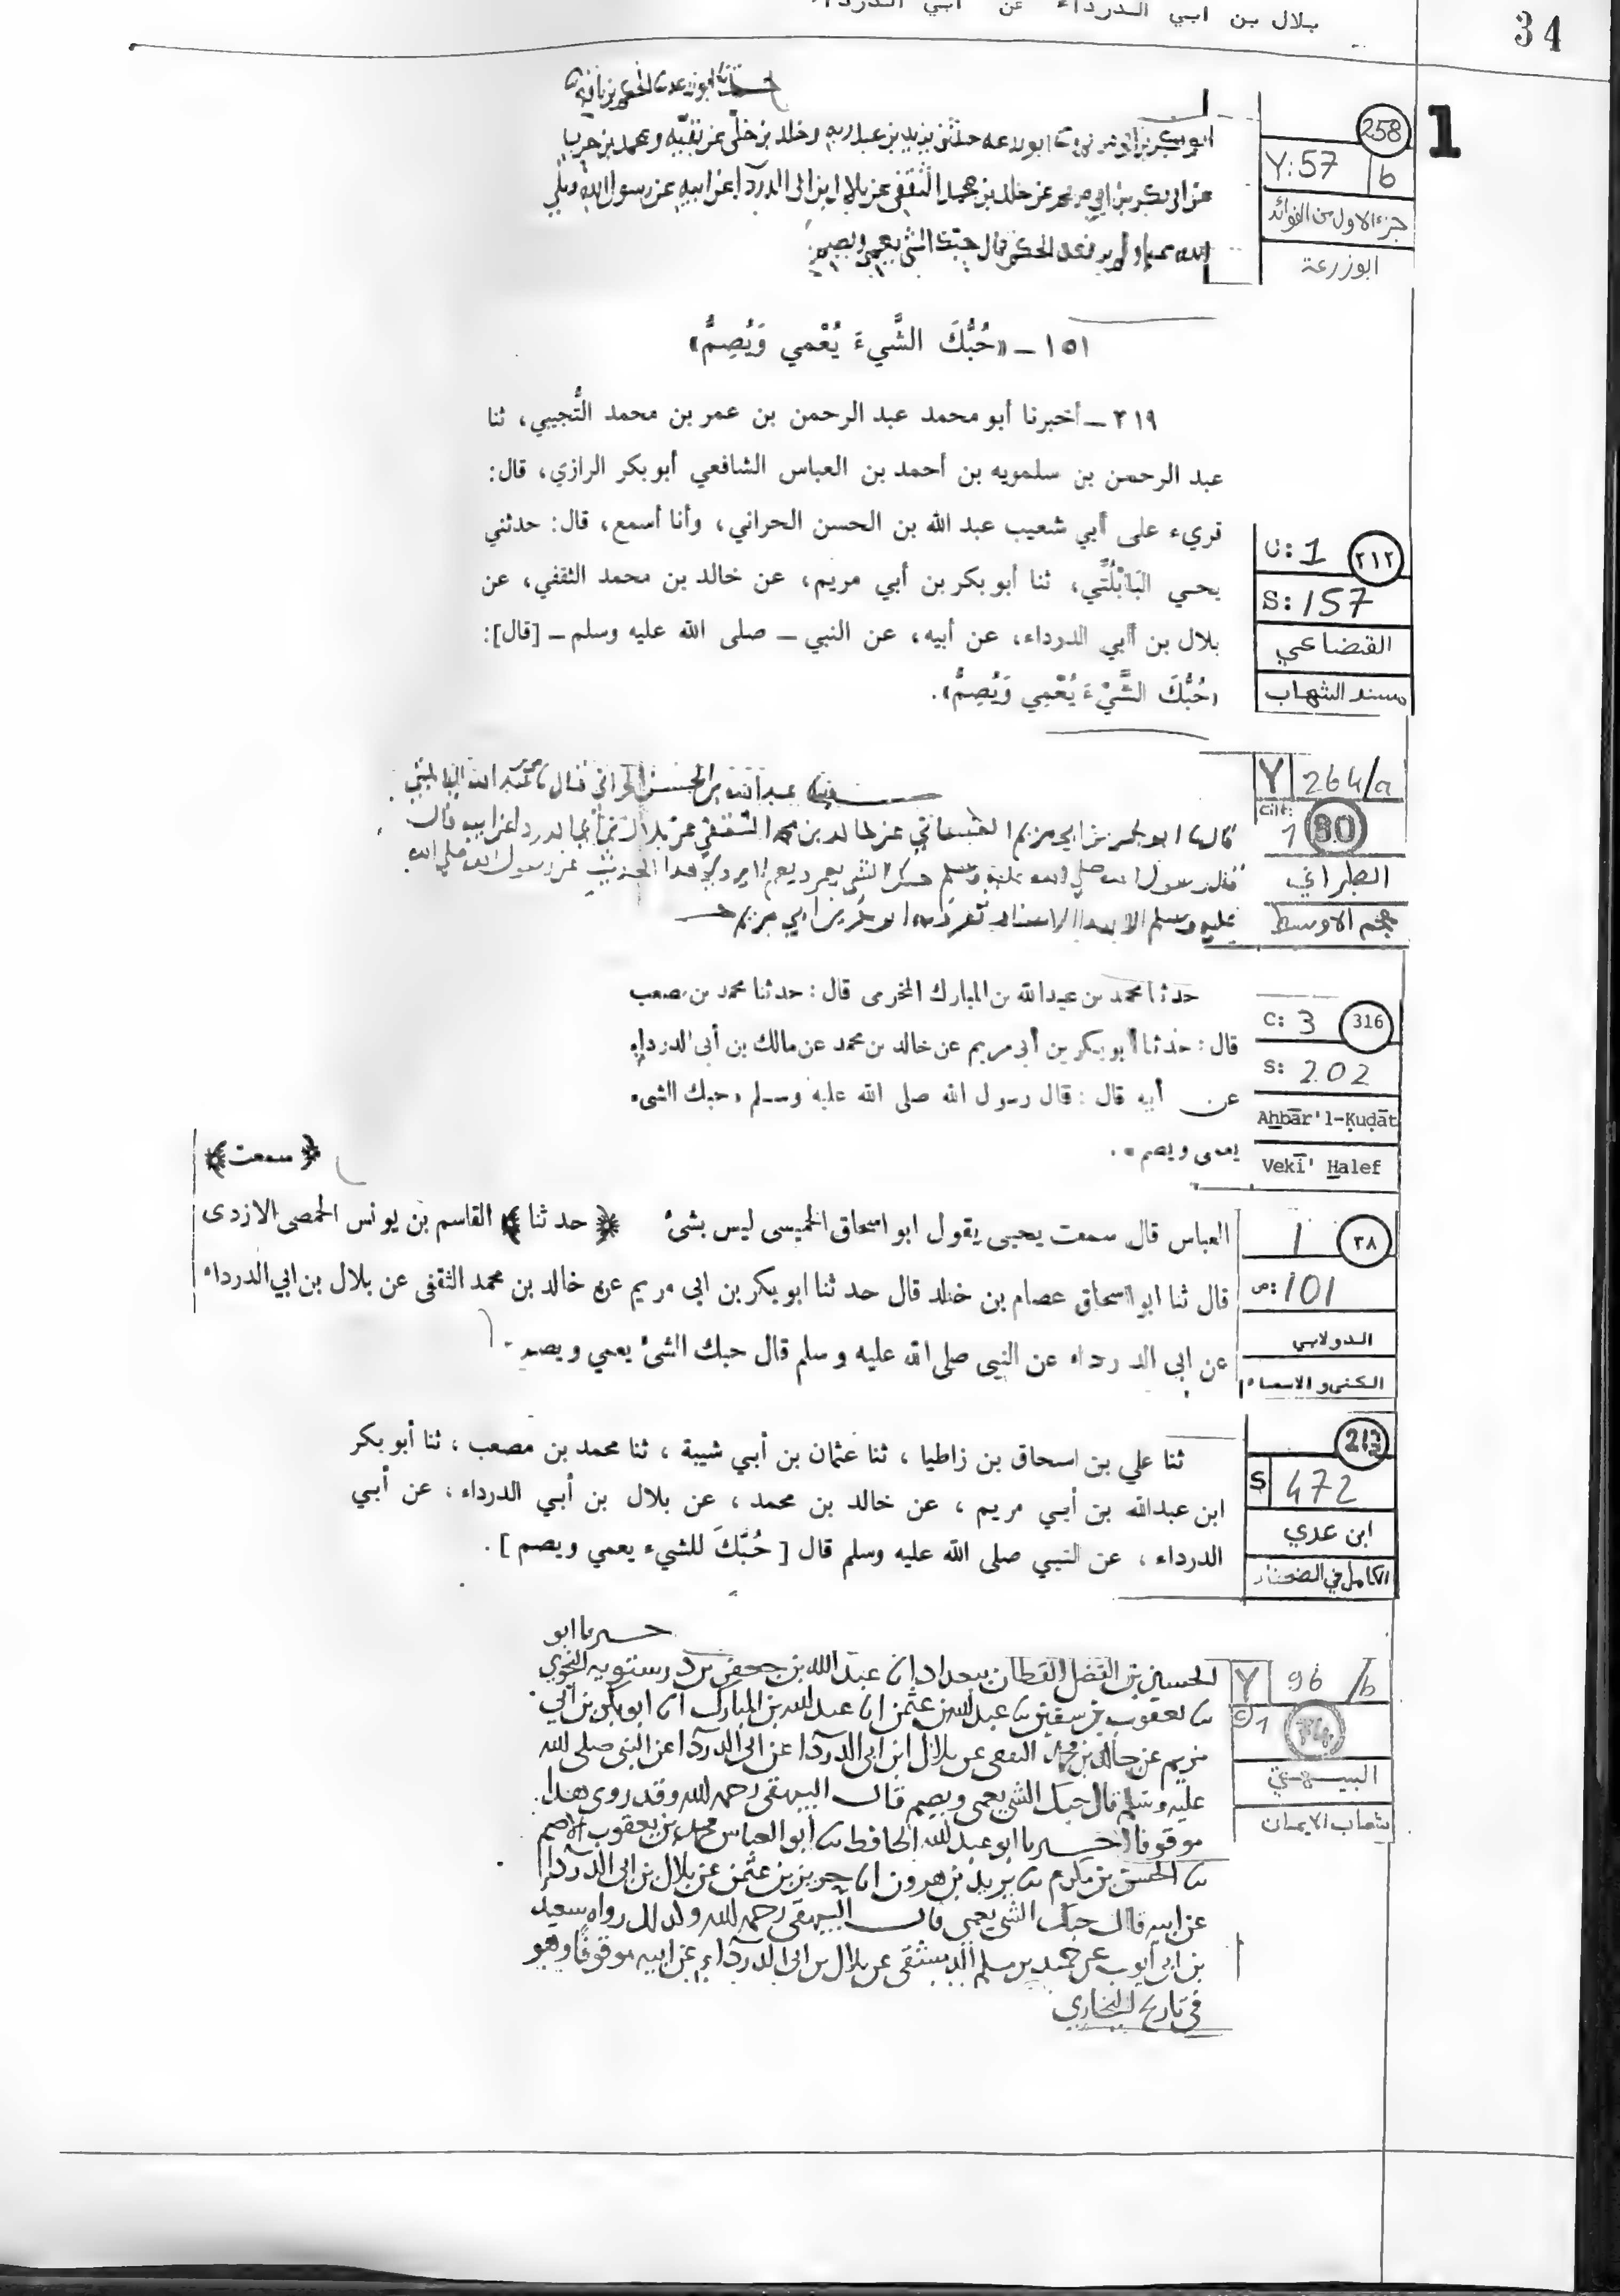 34
بلال بن ابي الدرداء عن ابي الدرداء
1
258
Y: 57 b
جزء الاول من الفوائد
ابوزرعة
حدثنا ابو زرعة الحكم بن نافع
ابو بكر بن ابي مريم ابو زرعة حدثني يزيد بن عبد ربه وخلد بن خلي عن بقيه ومحمد بن حرب
عن ابي بكر بن ابي مريم عن خلد بن محمد الثقفي عن بلال ابن ابي الدردا عن ابيه عن رسول الله صلي
الله قال حبك الشي يعمي ويصم
١٥١ – «حُبُّكَ الشَّيءَ يُعْمي وَيُصِمُّ»
٢١٩ – أخبرنا أبو محمد عبد الرحمن بن عمر بن محمد التُّجيبي، ثنا
عبد الرحمن بن سلمويه بن أحمد بن العباس الشافعي أبو بكر الرازي، قال:
قريء على أبي شعيب عبد الله بن الحسن الحراني، وأنا أسمع، قال: حدثني
يحيى البَابْلُتِّي، ثنا أبو بكر بن أبي مريم، عن خالد بن محمد الثقفي، عن
بلال بن أبي الدرداء، عن أبيه، عن النبي – صلى الله عليه وسلم – [قال]:
«حُبُّكَ الشَّيْءَ يُعْمِي وَيُصِمُّ».
C: 1 ٢١٢
S: 157
القضاعي
مسند الشهاب
Y 264/a
Cilt: 1 80
الطبراني
معجم الاوسط
عبد الله بن الحسن الحراني قال
قال ابو بكر بن ابي مريم الغساني عن خالد بن محمد الثقفي عن بلال بن ابي الدرداء عن ابيه قال
قال رسول الله صلى الله عليه وسلم حبك الشي يعمي ويصم لا يروى هذا الحديث عن رسول الله صلى الله
عليه وسلم الا بهذا الاسناد تفرد به ابو بكر بن ابي مريم
C: 3 316
S: 202
Ahbār'l-Ḳuḍāt
Vekī' Halef
حدثنا محمد بن عبدالله بن المبارك المخرمي قال : حدثنا محمد بن مصعب
قال : حدثنا أبو بكر بن أبى مريم عن خالد بن محمد عن مالك بن أبى الدرداء
عن أبيه قال : قال رسول الله صلى الله عليه وسلم ، حبك الشىء
يعمى ويصم » .
﴿ سمعت ﴾
العباس قال سمعت يحيى يقول ابو اسحاق الحميسى ليس بشئ ﴿ حدثنا ﴾ القاسم بن يونس الحمصى الازدى
قال ثنا ابو اسحاق عصام بن خالد قال حدثنا ابو بكر بن ابى مريم عن خالد بن محمد الثقفى عن بلال بن ابي الدرداء
عن ابى الدرداء عن النبي صلى الله عليه و سلم قال حبك الشئ يعمي و يصم -
1 ٣٨
ص: 101
الدولابي
الكنى و الاسماء
213
S 472
ابن عدي
الكامل في الضعفاء
ثنا علي بن اسحاق بن زاطيا ، ثنا عثمان بن أبي شيبة ، ثنا محمد بن مصعب ، ثنا أبو بكر
ابن عبدالله بن أبي مريم ، عن خالد بن محمد ، عن بلال بن أبي الدرداء ، عن أبي
الدرداء ، عن النبي صلى الله عليه وسلم قال [ حُبُّكَ للشيء يعمي ويصم ] .
Y 96/b
C 1
البيهقي
شعاب الايمان
اخبرنا ابو
الحسين بن الفضل القطان ببغداد انا عبد الله بن جعفر بن درستويه النحوي
نا يعقوب بن سفين نا عبد الله بن عثمن انا عبد الله بن المبارك انا ابو بكر بن ابي
مريم عن خالد بن محمد الثقفي عن بلال ابن ابي الدردا عن ابي الدردا عن النبي صلى الله
عليه وسلم قال حبك الشي يعمي ويصم قال البيهقي رحمه الله وقد روي هذا
موقوفا اخبرنا ابو عبد الله الحافظ نا أبو العباس محمد بن يعقوب الاصم
نا الحسن بن مكرم نا يزيد بن هرون انا حريز بن عثمن عن بلال بن ابي الدردا
عن ابيه قال حبك الشي يعمي قال البيهقي رحمه الله وكذلك رواه سعيد
بن ابي أيوب عن حميد بن مسلم الدمشقي عن بلال بن ابي الدرداء عن ابيه موقوفا وهو
في تاريخ البخاري